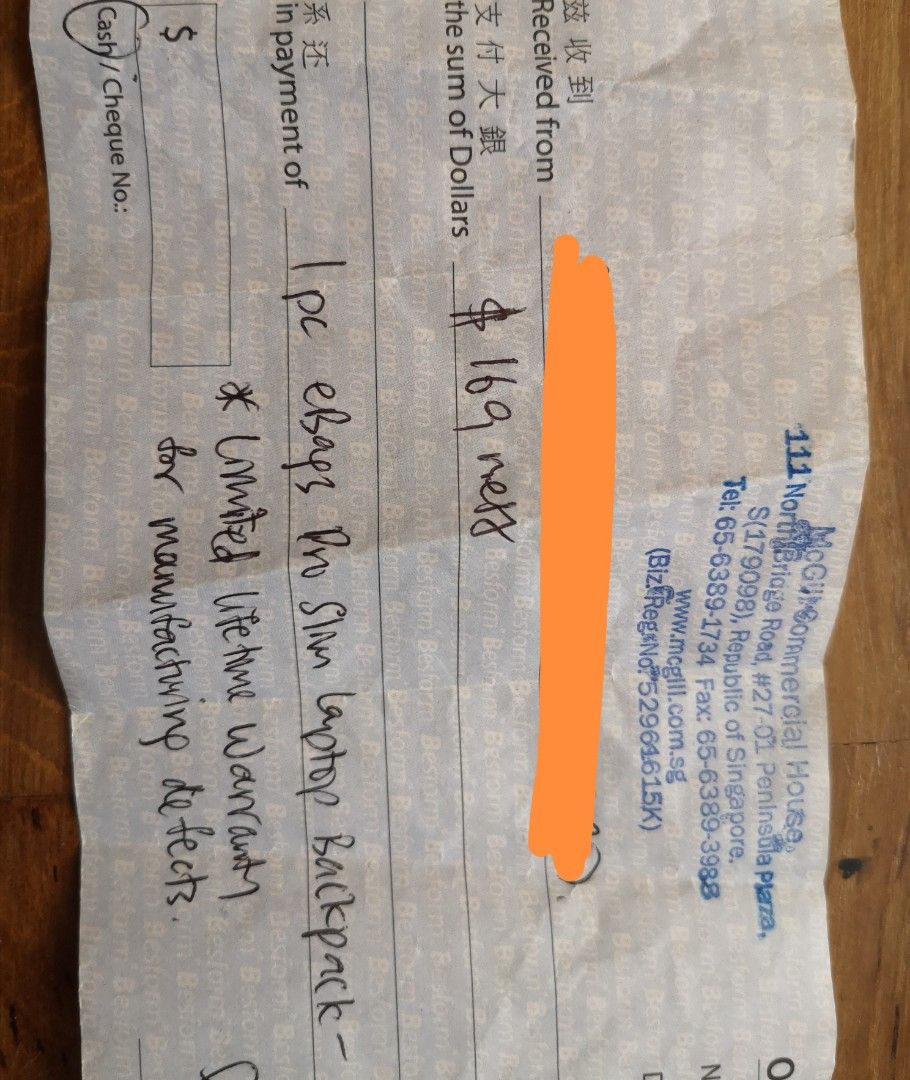 McGill Commercial House,
111 North Bridge Road, #27-01 Peninsula Plaza,
S(179098), Republic of Singapore.
Tel: 65-6389-1734 Fax: 65-6389-3988
www.mcgill.com.sg
(Biz. Reg. No. 52964615K)
茲 收 到
Received from
支 付 大 銀
the sum of Dollars $169 nett
系 还
in payment of 1 pc eBags Pro Slim Laptop Backpack -
* Limited Lifetime Warranty
for manufacturing defects.
$
Cash / Cheque No.: